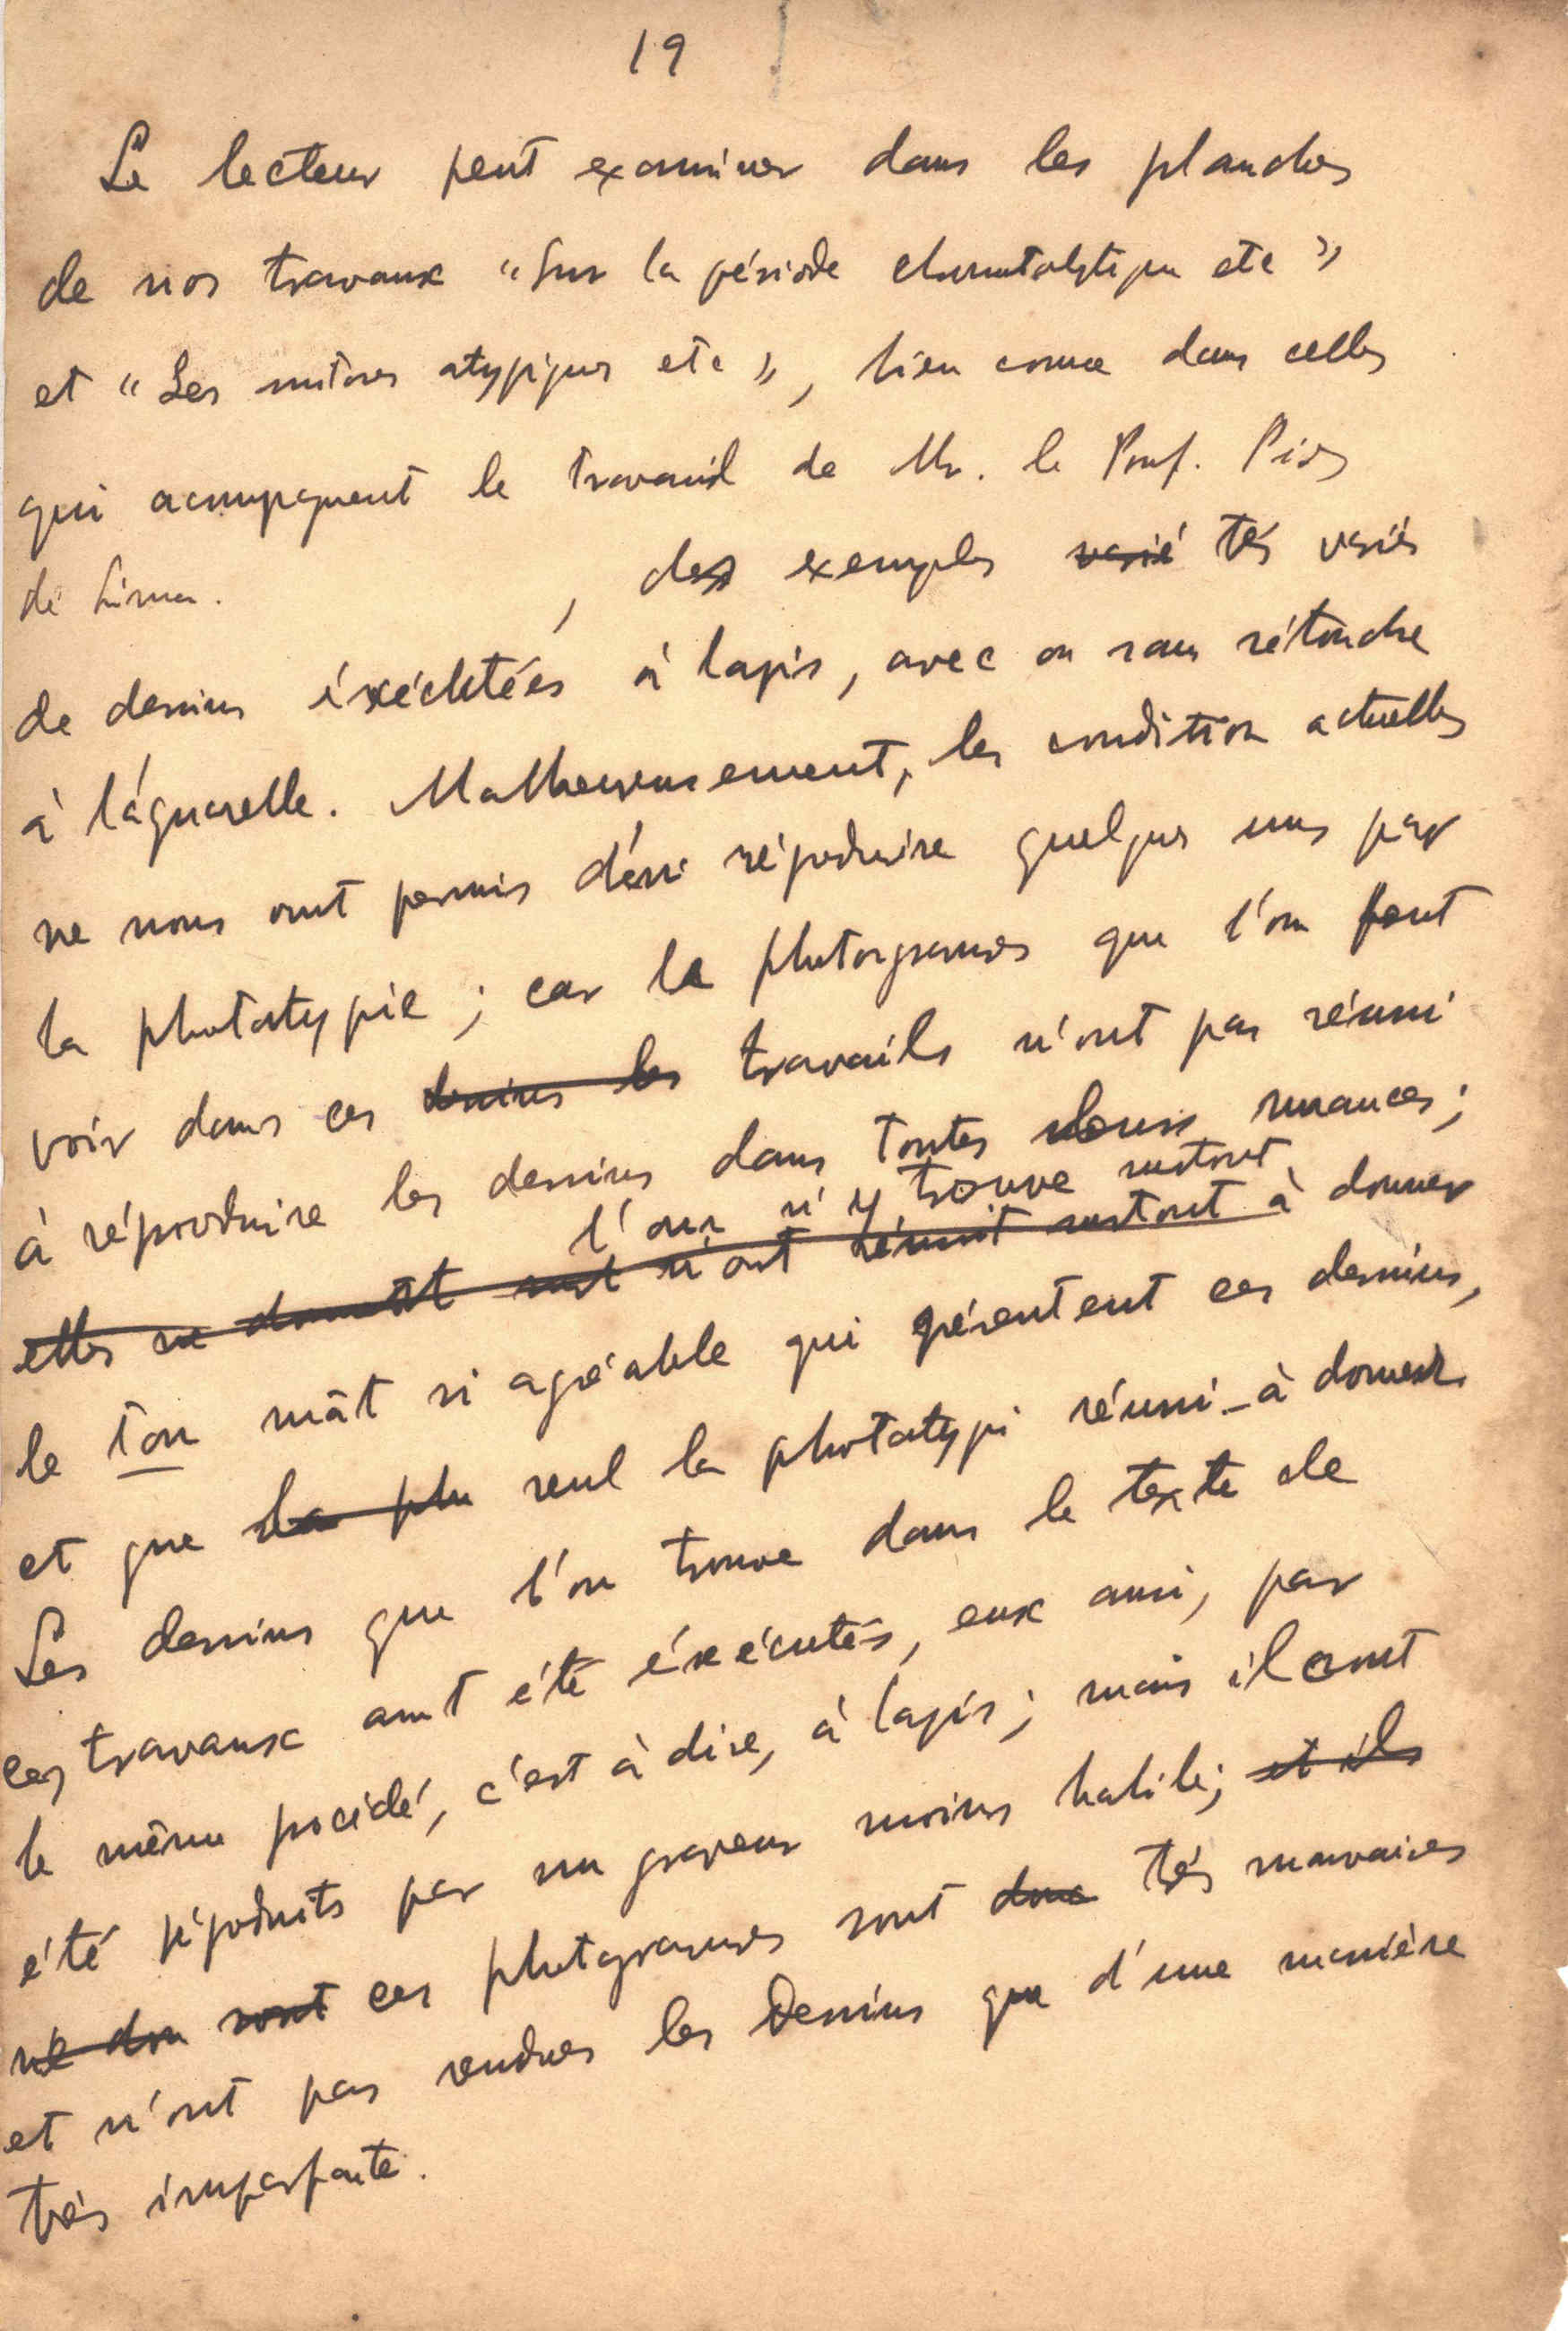 19
Le lecteur peut examiner dans les planches
de nos travaux "Sur la période chromatolytique etc"
et "Les mitoses atypiques etc", bien comme dans celles
qui acompagnent le travail de Mr. le Prof. Pires
de Lima. , des exemples varié tés variés
de dessins éxécutées à lapis, avec ou sans rétouche
à l'áquarelle. Malheureusement, les condition actuelles
ne nous ont permis d'en réproduire quelques uns par
la phototypie; car le photogravures que l'on peut
voir dans ces dessins les travails n'ont pas réussi
à réproduire les dessins dans toutes leurs nuances;
l'on n'y trouve surtout
elles ne n'ont réussit surtout à donner
le ton mât si agréable qui présentent ces dessins,
et que la plu seul la phototypi réussi à donner.
Les dessins que l'on trouve dans le texte de
ces travaux ont été éxécutés, eux aussi, par
le même procédé, c'est à dire, à lapis; mais il ont
été réproduits par un graveur moins habile; et ils
ne don sont ces photogravures sont donc trés mauvaises
et n'ont pas rendues les dessins que d'une maniére
trés imparfaite.